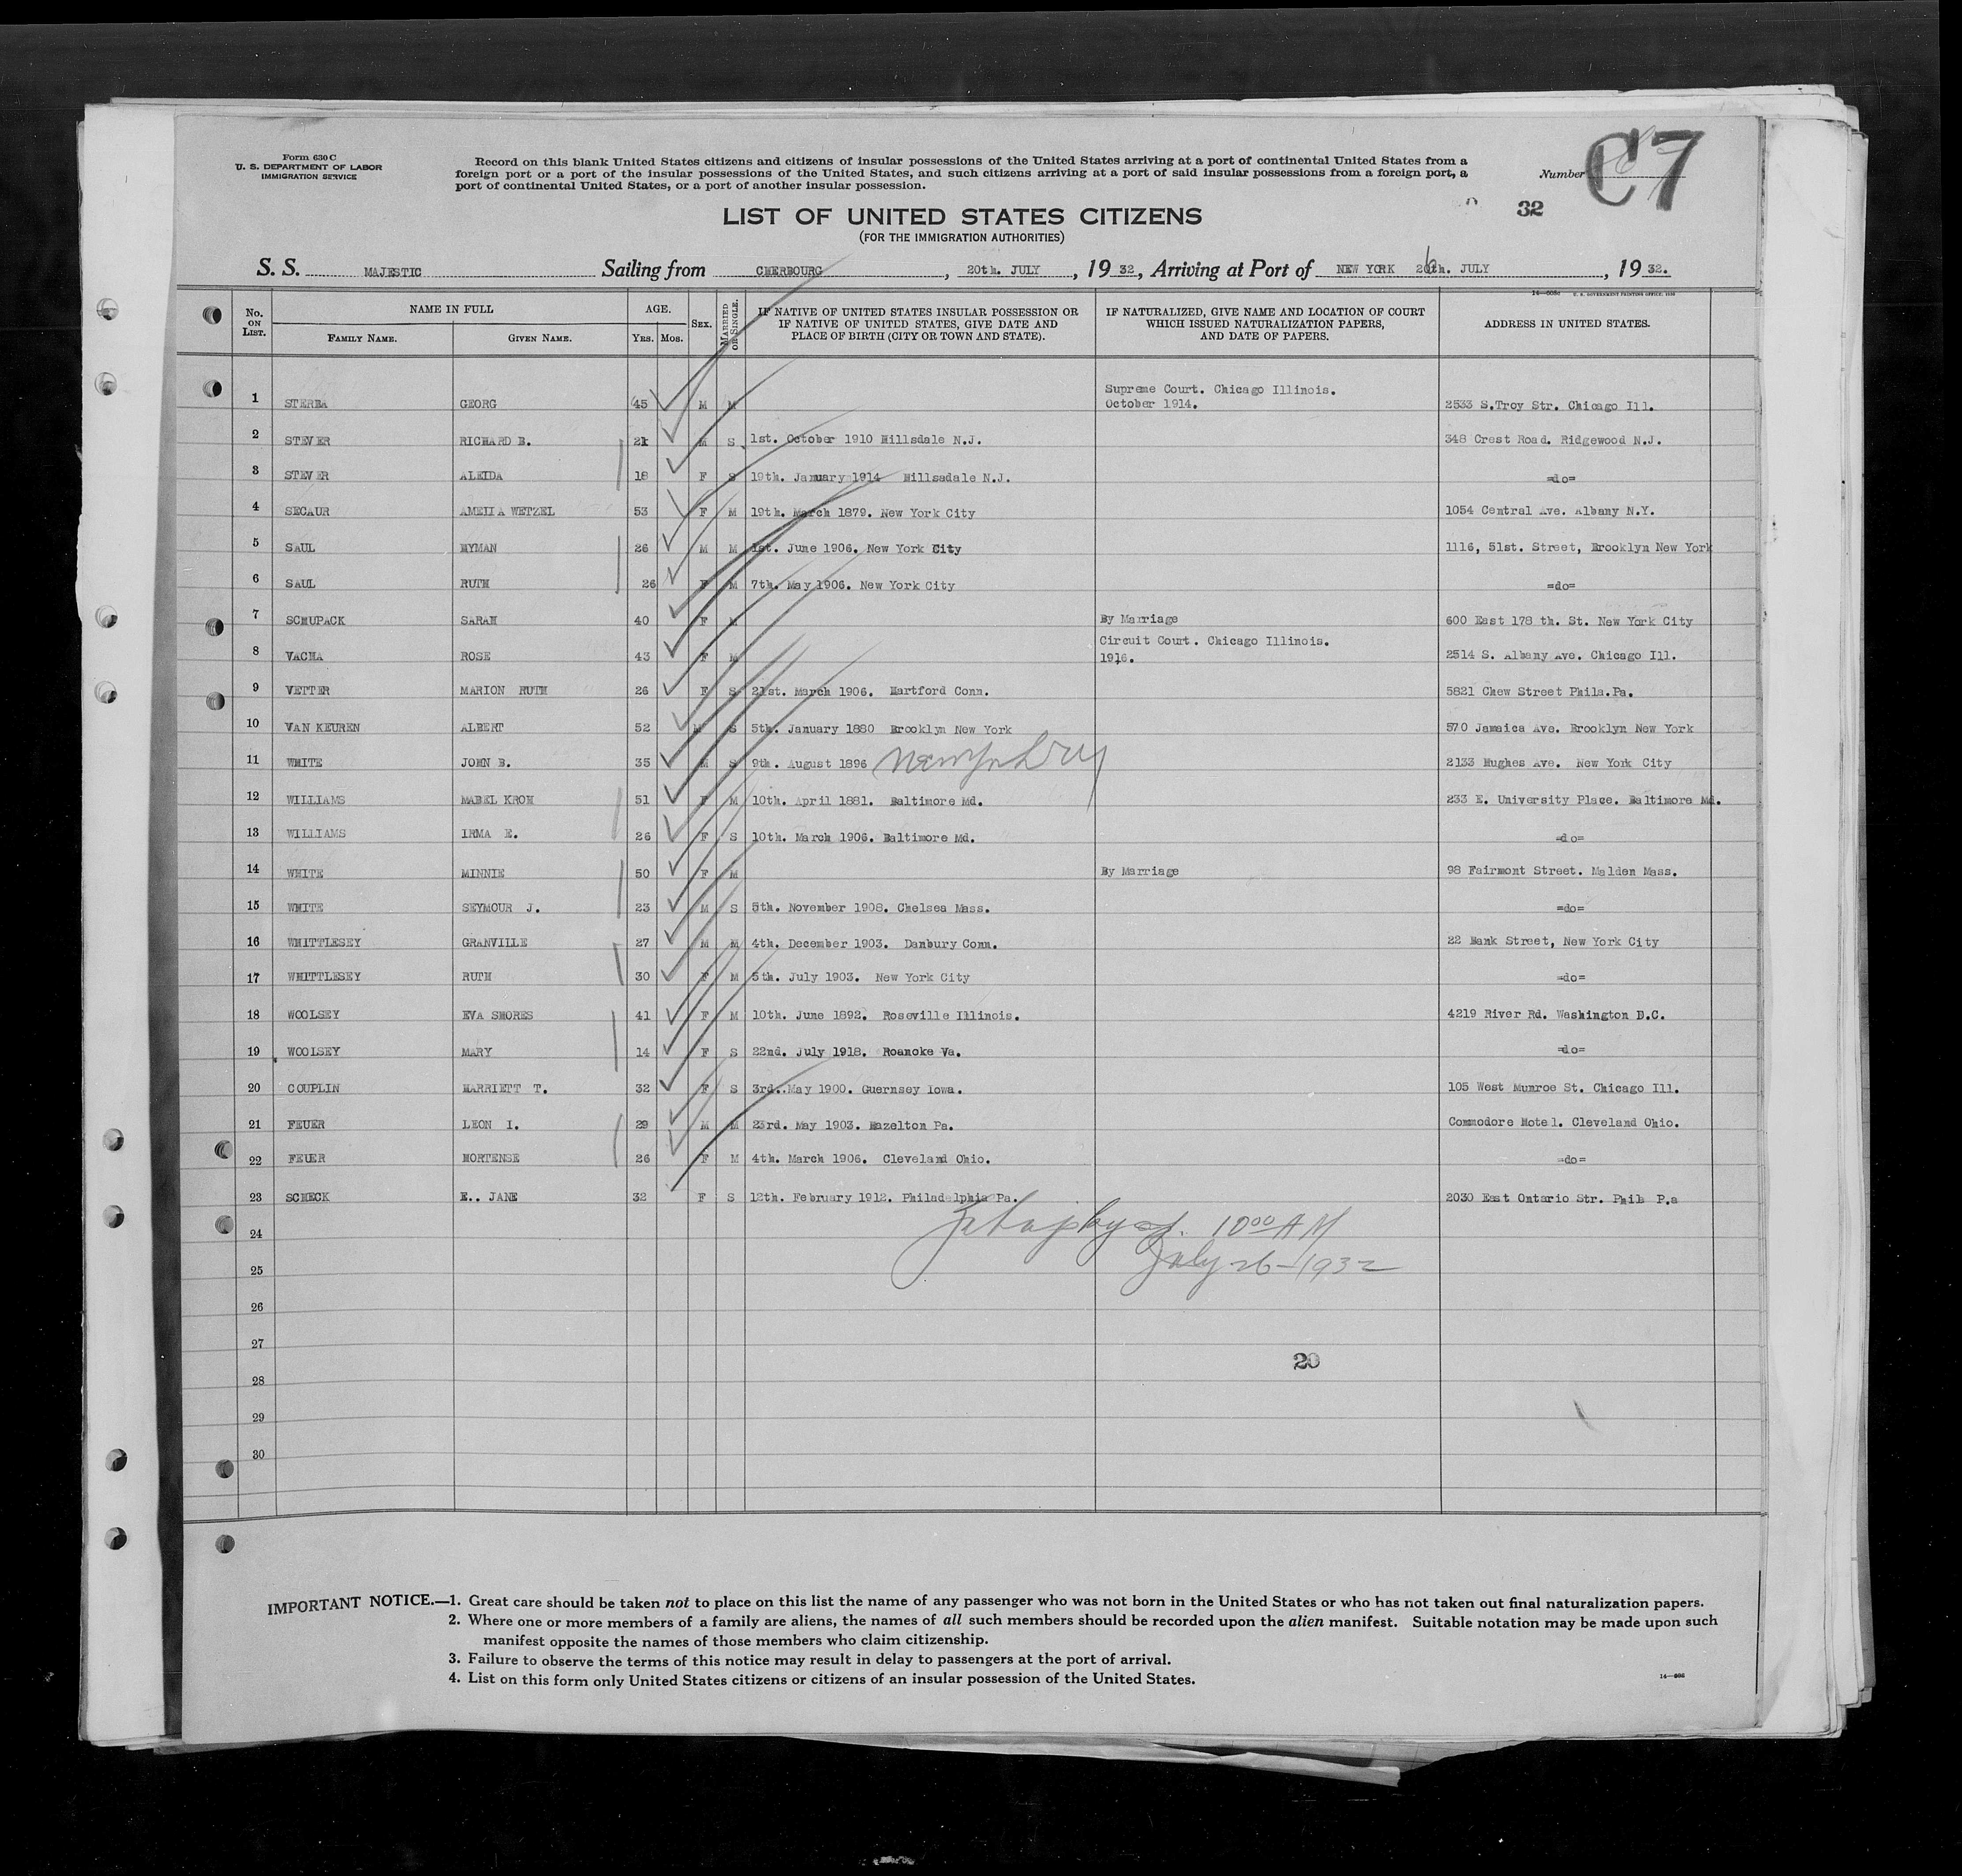 Form 630 C
U. S. DEPARTMENT OF LABOR
IMMIGRATION SERVICE
Record on this blank United States citizens and citizens of insular possessions of the United States arriving at a port of continental United States from a
foreign port or a port of the insular possessions of the United States, and such citizens arriving at a port of said insular possessions from a foreign port, a
port of continental United States, or a port of another insular possession.
Number C7
32
LIST OF UNITED STATES CITIZENS
(FOR THE IMMIGRATION AUTHORITIES)
S. S. MAJESTIC Sailing from CHERBOURG, 20th. JULY, 19 32, Arriving at Port of NEW YORK 26th. JULY, 19 32.
No. ON LIST. NAME IN FULL FAMILY NAME. GIVEN NAME. AGE. Yrs. Mos. SEX. MARRIED OR SINGLE. IF NATIVE OF UNITED STATES INSULAR POSSESSION OR IF NATIVE OF UNITED STATES, GIVE DATE AND PLACE OF BIRTH (CITY OR TOWN AND STATE). IF NATURALIZED, GIVE NAME AND LOCATION OF COURT WHICH ISSUED NATURALIZATION PAPERS, AND DATE OF PAPERS. ADDRESS IN UNITED STATES.
1 STERBA GEORG 45 M M Supreme Court. Chicago Illinois. October 1914. 2533 S.Troy Str. Chicago Ill.
2 STEVER RICHARD B. 21 M S 1st. October 1910 Hillsdale N.J. 348 Crest Road. Ridgewood N.J.
3 STEVER ALEIDA 18 F S 19th. January 1914 Hillsadale N.J. =do=
4 SECAUR AMELIA WETZEL 53 F M 19th. March 1879. New York City 1054 Central Ave. Albany N.Y.
5 SAUL HYMAN 26 M M 1st. June 1906. New York City 1116, 51st. Street, Brooklyn New York
6 SAUL RUTH 26 F M 7th. May 1906. New York City =do=
7 SCHUPACK SARAH 40 F M By Marriage 600 East 178 th. St. New York City
8 VACHA ROSE 43 F M Circuit Court. Chicago Illinois. 1916. 2514 S. Albany Ave. Chicago Ill.
9 VETTER MARION RUTH 26 F S 21st. March 1906. Hartford Conn. 5821 Chew Street Phila.Pa.
10 VAN KEUREN ALBERT 52 M S 5th. January 1880 Brooklyn New York 570 Jamaica Ave. Brooklyn New York
11 WHITE JOHN B. 35 M S 9th. August 1896 2133 Hughes Ave. New York City
12 WILLIAMS MABEL KROH 51 F M 10th. April 1881. Baltimore Md. 233 E. University Place. Baltimore Md.
13 WILLIAMS IRMA E. 26 F S 10th. March 1906. Baltimore Md. =do=
14 WHITE MINNIE 50 F M By Marriage 98 Fairmont Street. Malden Mass.
15 WHITE SEYMOUR J. 23 M S 5th. November 1908. Chelsea Mass. =do=
16 WHITTLESEY GRANVILLE 27 M M 4th. December 1903. Danbury Conn. 22 Bank Street, New York City
17 WHITTLESEY RUTH 30 F M 5th. July 1903. New York City =do=
18 WOOLSEY EVA SHORES 41 F M 10th. June 1892. Roseville Illinois. 4219 River Rd. Washington D.C.
19 WOOLSEY MARY 14 F S 22nd. July 1918. Roanoke Va. =do=
20 COUPLIN HARRIETT T. 32 F S 3rd..May 1900. Guernsey Iowa. 105 West Munroe St. Chicago Ill.
21 FEUER LEON I. 29 M M 23rd. May 1903. Hazelton Pa. Commodore Hotel. Cleveland Ohio.
22 FEUER HORTENSE 26 F M 4th. March 1906. Cleveland Ohio. =do=
23 SCHECK E.. JANE 32 F S 12th. February 1912. Philadelphia Pa. 2030 East Ontario Str. Phila P.a
24 10 00 AM
25 July 26-1932
26
27
20
28
29
30
IMPORTANT NOTICE.—1. Great care should be taken not to place on this list the name of any passenger who was not born in the United States or who has not taken out final naturalization papers.
2. Where one or more members of a family are aliens, the names of all such members should be recorded upon the alien manifest. Suitable notation may be made upon such
manifest opposite the names of those members who claim citizenship.
3. Failure to observe the terms of this notice may result in delay to passengers at the port of arrival.
4. List on this form only United States citizens or citizens of an insular possession of the United States.